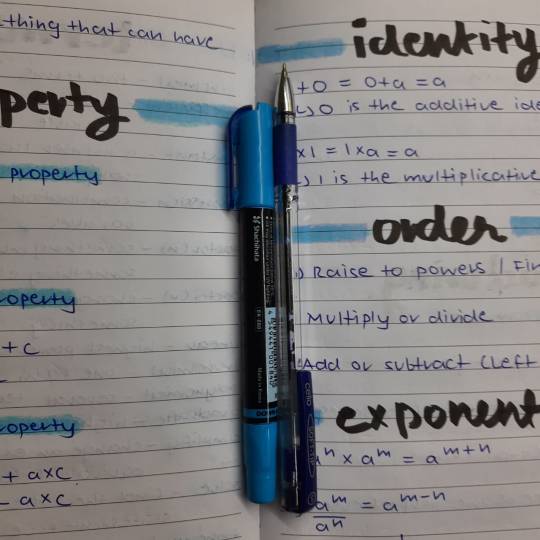 thing that can have
perty
property
roperty
+ c
roperty
+ axc
- axc
identity
+0 = 0+a = a
↳ 0 is the additive ide
x1 = 1xa = a
↳ 1 is the multiplicative
order
Raise to powers / Fin
Multiply or divide
Add or subtract (left
exponent
aⁿ x aᵐ = aᵐ⁺ⁿ
aᵐ/aⁿ = aᵐ⁻ⁿ
Shachihata
Made in Korea
cello